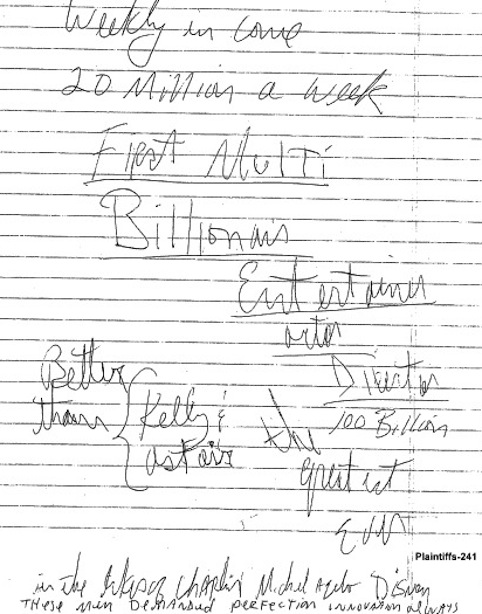 Weekly in come
20 Million a week
First Multi
Billionair
Entertainer
actor
Director
Better
than
Kelly &
astair
100 Billion
the
greatest
ever
Plaintiffs-241
in the Chaplin Michel Disney
These men demanded perfection innovation always